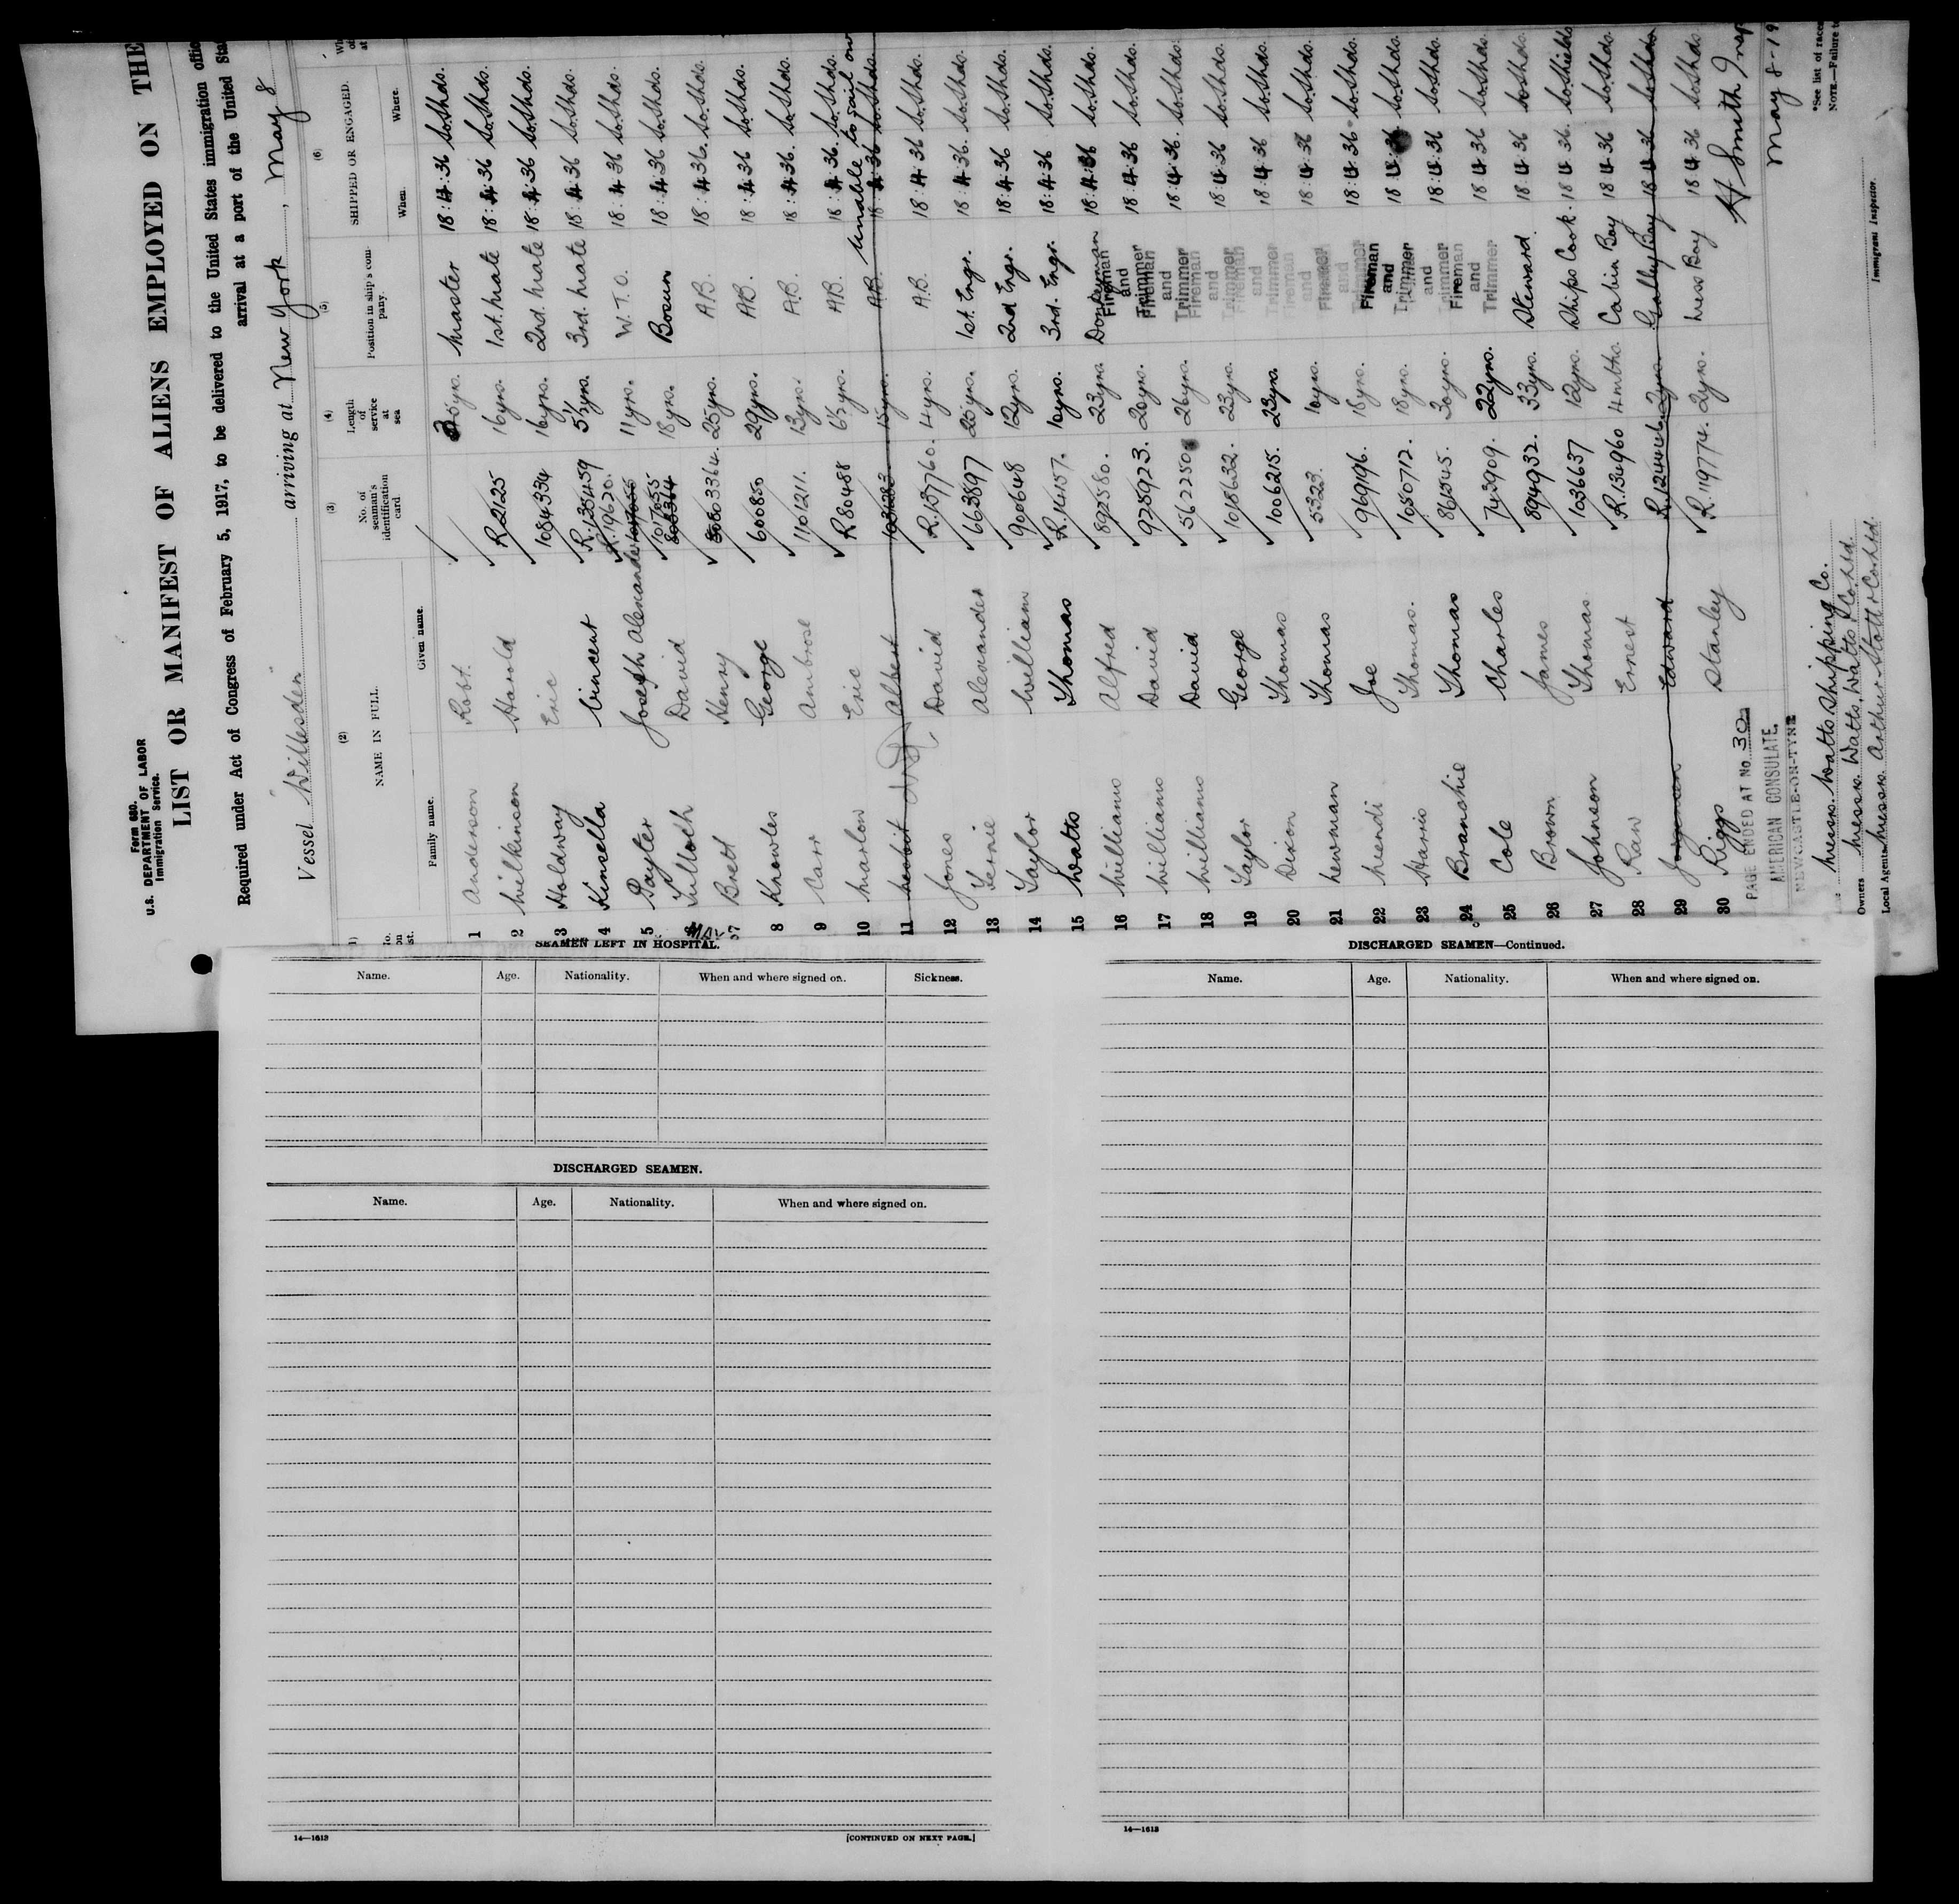 Form 680.
U.S. DEPARTMENT OF LABOR
Immigration Service.
LIST OR MANIFEST OF ALIENS EMPLOYED ON THE
Required under Act of Congress of February 5, 1917, to be delivered to the United States immigration offic
arrival at a port of the United Sta
Vessel "Willesden" arriving at New York, May 8
(2) (3) (4) (5) (6)
NAME IN FULL No. of seaman's identification card Length of service at sea Position in ship's company. SHIPPED OR ENGAGED.
Family name. Given name. When. Where.
1 Anderson Robt. Master 18:4:36 So.Shds.
2 Wilkinson Harold R2125 16yrs. 1st. Mate 18:4:36 So.Shds.
3 Holdway Eric 1084334 16yrs. 2nd. Mate 18:4:36 So.Shds.
4 Kinsella Vincent R.138459 5½yrs. 3rd. Mate 18:4:36 So.Shds.
5 Payter Joseph Alexander R.19620. 11yrs. W.T.O. 18:4:36 So.Shds.
Tulloch David 1017055 18yrs. Bosun 18:4:36 So.Shds.
7 Brett Henry 803364. 25yrs. A.B. 18:4:36. So.Shds.
8 Knowles George 600850 29yrs. A.B. 18:4:36 So.Shds.
9 Carr Ambrose 1101211. 13yrs. A.B. 18:4:36. So.Shds.
10 Marlow Eric R80488 6½yrs. A.B. 18:4:36. So.Shds.
Unable to sail own
11 Albert 15yrs. A.B. 18:4:36 So.Shds.
12 Jones David R.13760. 4yrs. A.B. 18:4:36 So.Shds.
13 Fernie Alexander 663897 25yrs. 1st. Engr. 18:4:36. So.Shds.
14 Taylor William 900648 12yrs. 2nd Engr. 18:4:36 So.Shds.
15 Watts Thomas R.1457. 10yrs. 3rd. Engr. 18:4:36 So.Shds.
16 Williams Alfred 892580. 23yrs. Donkeyman 18:4:36 So.Shds.
17 Williams David 925923. 20yrs. Fireman and Trimmer 18:4:36 So.Shds.
18 Williams David 562250 26yrs. Fireman and Trimmer 18:4:36. So.Shds.
19 Taylor George 1018632. 23yrs. Fireman and Trimmer 18:4:36 So.Shds.
20 Dixon Thomas 1006215. 23yrs. Fireman and Trimmer 18:4:36 So.Shds.
21 Newman Thomas 5323. 16yrs. Fireman and Trimmer 18:4:36 So.Shds.
22 Mendi Joe 969196. 18yrs. Fireman and Trimmer 18:4:36 So.Shds.
23 Harris Thomas. 1050712. 18yrs. Fireman and Trimmer 18:4:36 So.Shds.
24 Branchie Thomas 861545. 30yrs. Fireman and Trimmer 18:4:36 So.Shds.
25 Cole Charles 743909. 22yrs. Fireman and Trimmer 18 4 36 So.Shds.
26 Brown James 894932. 33yrs. Steward. 18 4 36 So.Shds.
27 Johnson Thomas 1036637 12yrs. Ships Cook. 18 4 36. So.Shields
28 Raw Ernest R.134960 4mths. Cabin Boy 18 4 36 So.Shds.
29 Jorgensen Edward R.124446 2yrs. Galley Boy 18 4 36 So.Shds.
30 Riggs Stanley R.119774. 2yrs. Mess Boy 18 4 36 So.Shds.
PAGE ENDED AT No. 30
AMERICAN CONSULATE,
NEWCASTLE-ON-TYNE
H Smith Insp
May 8-19
Messrs. Watts Shipping Co.
Owners Messrs. Watts, Watts & Co. Ltd.
Local Agents Messrs. Arthur Stott & Co. Ltd.
Immigrant Inspector.
*See list of race
NOTE.—Failure t
SEAMEN LEFT IN HOSPITAL.
Name. Age. Nationality. When and where signed on. Sickness.
DISCHARGED SEAMEN.
Name. Age. Nationality. When and where signed on.
14—1613 [CONTINUED ON NEXT PAGE.]
DISCHARGED SEAMEN—Continued.
Name. Age. Nationality. When and where signed on.
14—1613